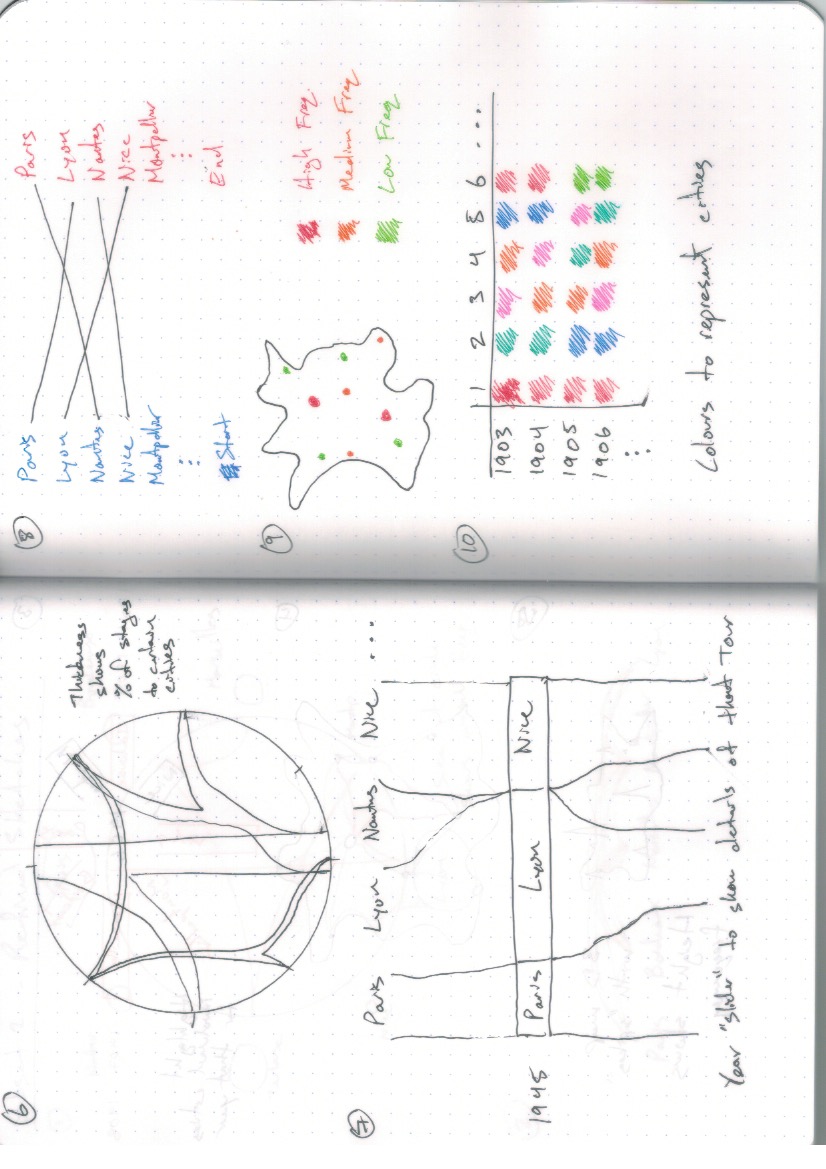 6
Thickness
shows
% of stages
to certain
cities
7
Paris Lyon Nantes Nice ...
1945 Paris Lyon Nice
Year "slider" to show details of that Tour
8
Paris Paris
Lyon Lyon
Nantes Nantes
Nice Nice
Montpellier Montpellier
Start End
9
High Freq.
Medium Freq
Low Freq
10
1 2 3 4 5 6 ....
1903
1904
1905
1906
Colours to represent cities